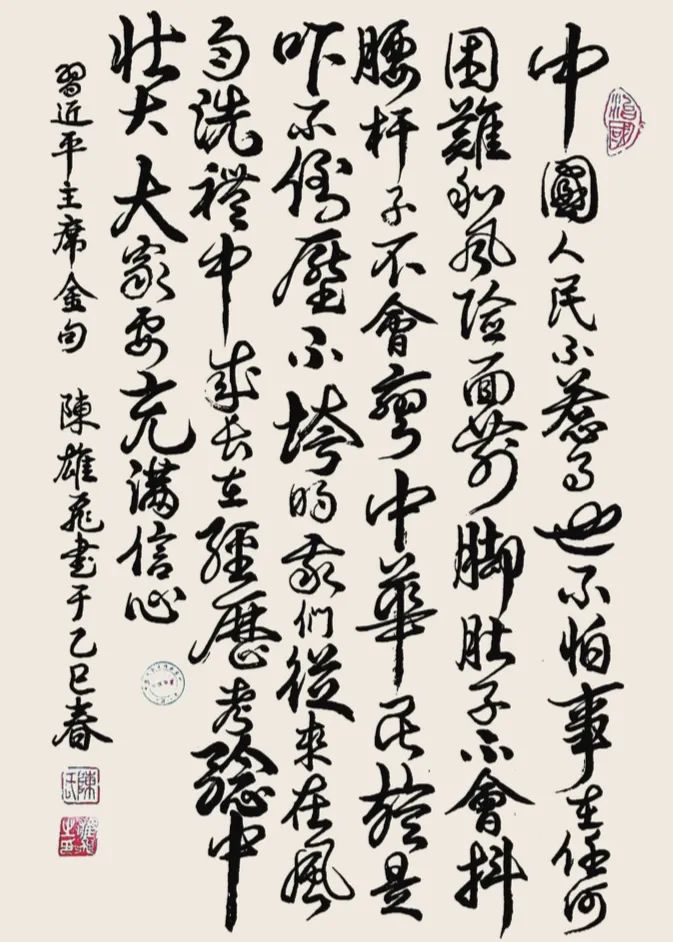 治國
中國人民不惹事也不怕事在任何
困難和风险面前脚肚子不會抖
腰杆子不會彎中華民族是
吓不倒壓不垮的我們從来在風
雨洗禮中成长在經歷考驗中
壮大大家要充滿信心
習近平主席金句 陳雄飛書于乙巳春
陳氏